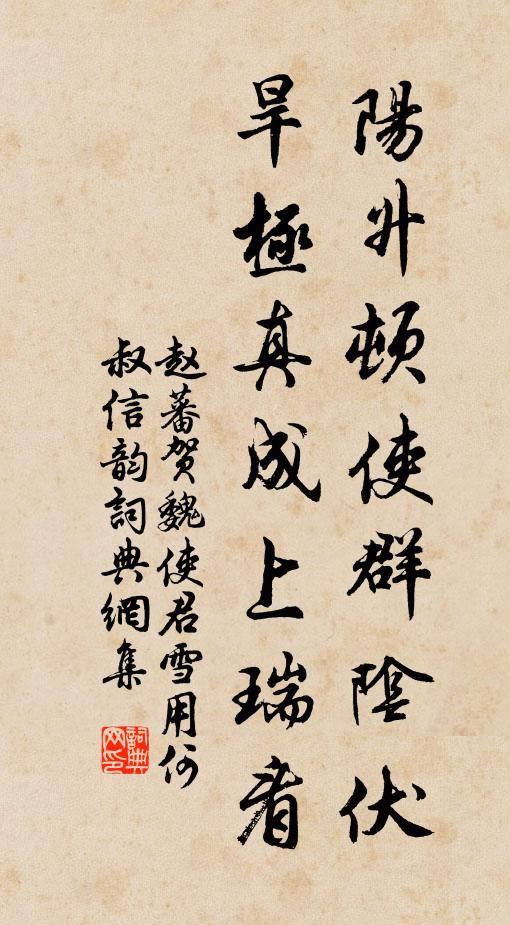 陽升頓使群陰伏
旱極真成上瑞看
赵蕃贺魏使君雪用何
叔信韵詞典網集
詞典网印